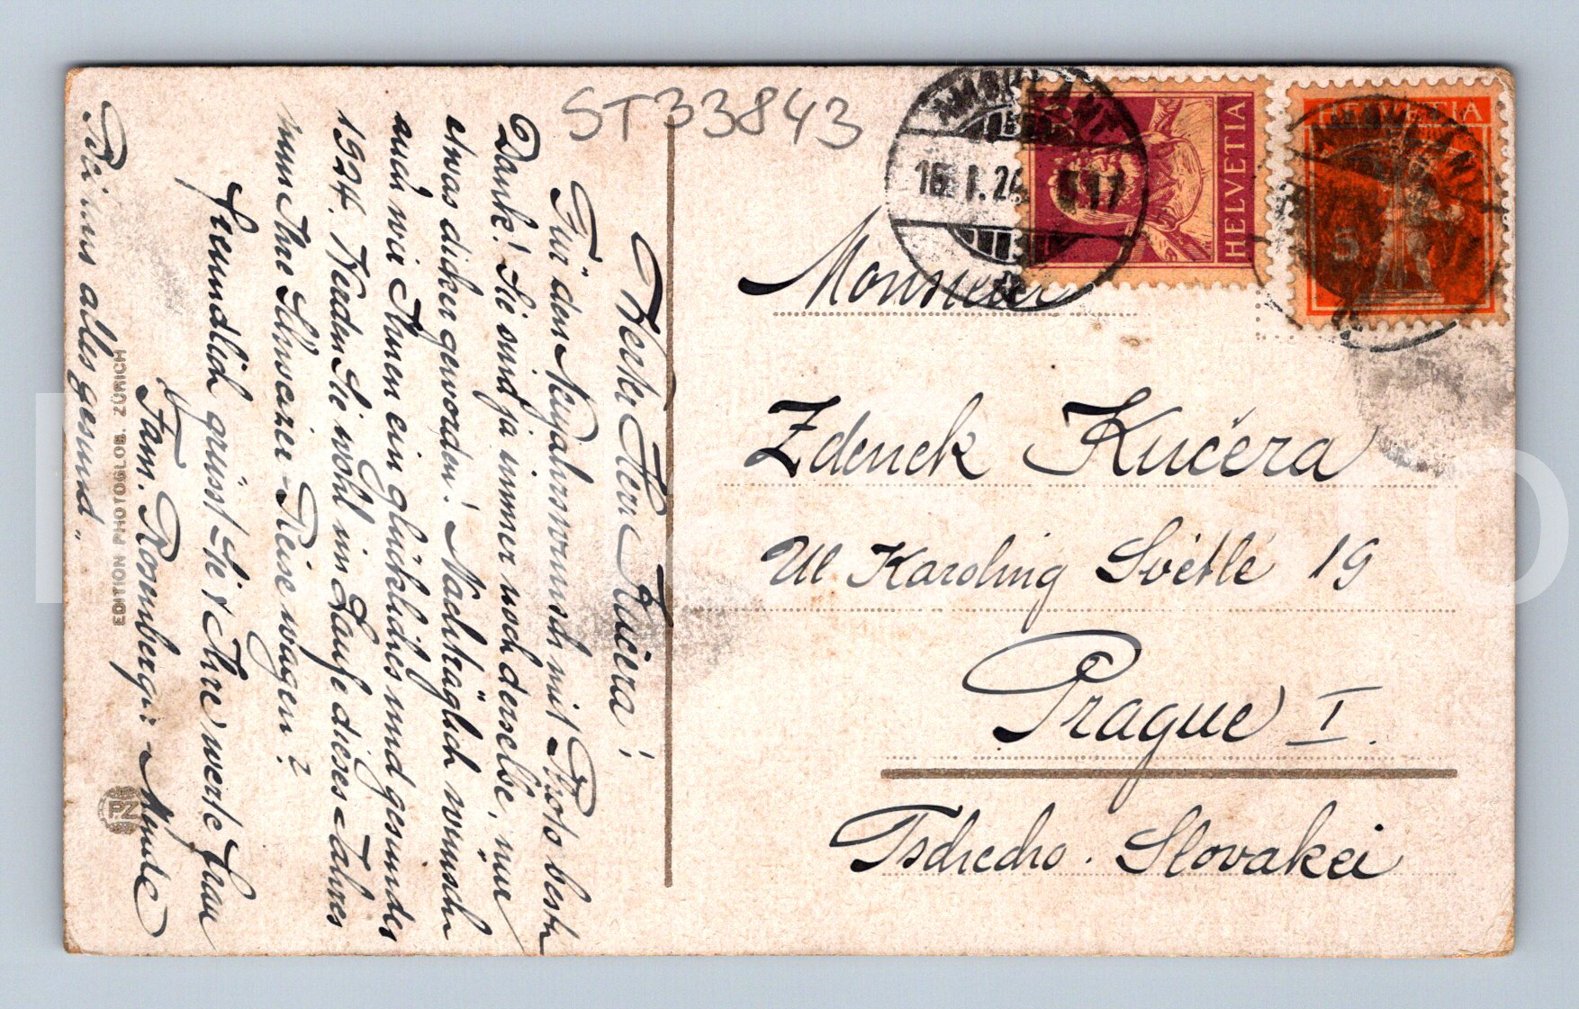 ST33843
Werter Herr Kučera!
Für den Neujahrswunsch mit Photo besten
Dank! Sie sind ja immer noch derselbe, nur
etwas dicker geworden! Nachträglich wünschen
auch wir Ihnen ein glückliches und gesundes
1924. Werden Sie wohl im Laufe dieses Jahres
nun Ihre Schweizer-Reise wagen?
Freundlich grüsst Sie & Ihre werte Frau
Fam. Rosenberger:
Bei uns alles gesund."
EDITION PHOTOGLOB. ZÜRICH
PZ
Monsieur
Zdenek Kučera
Ul Karoliny Světlé 19
Prague I.
Tschecho-Slovakei
AMBULANT
16.I.24
HELVETIA
HELVETIA
5